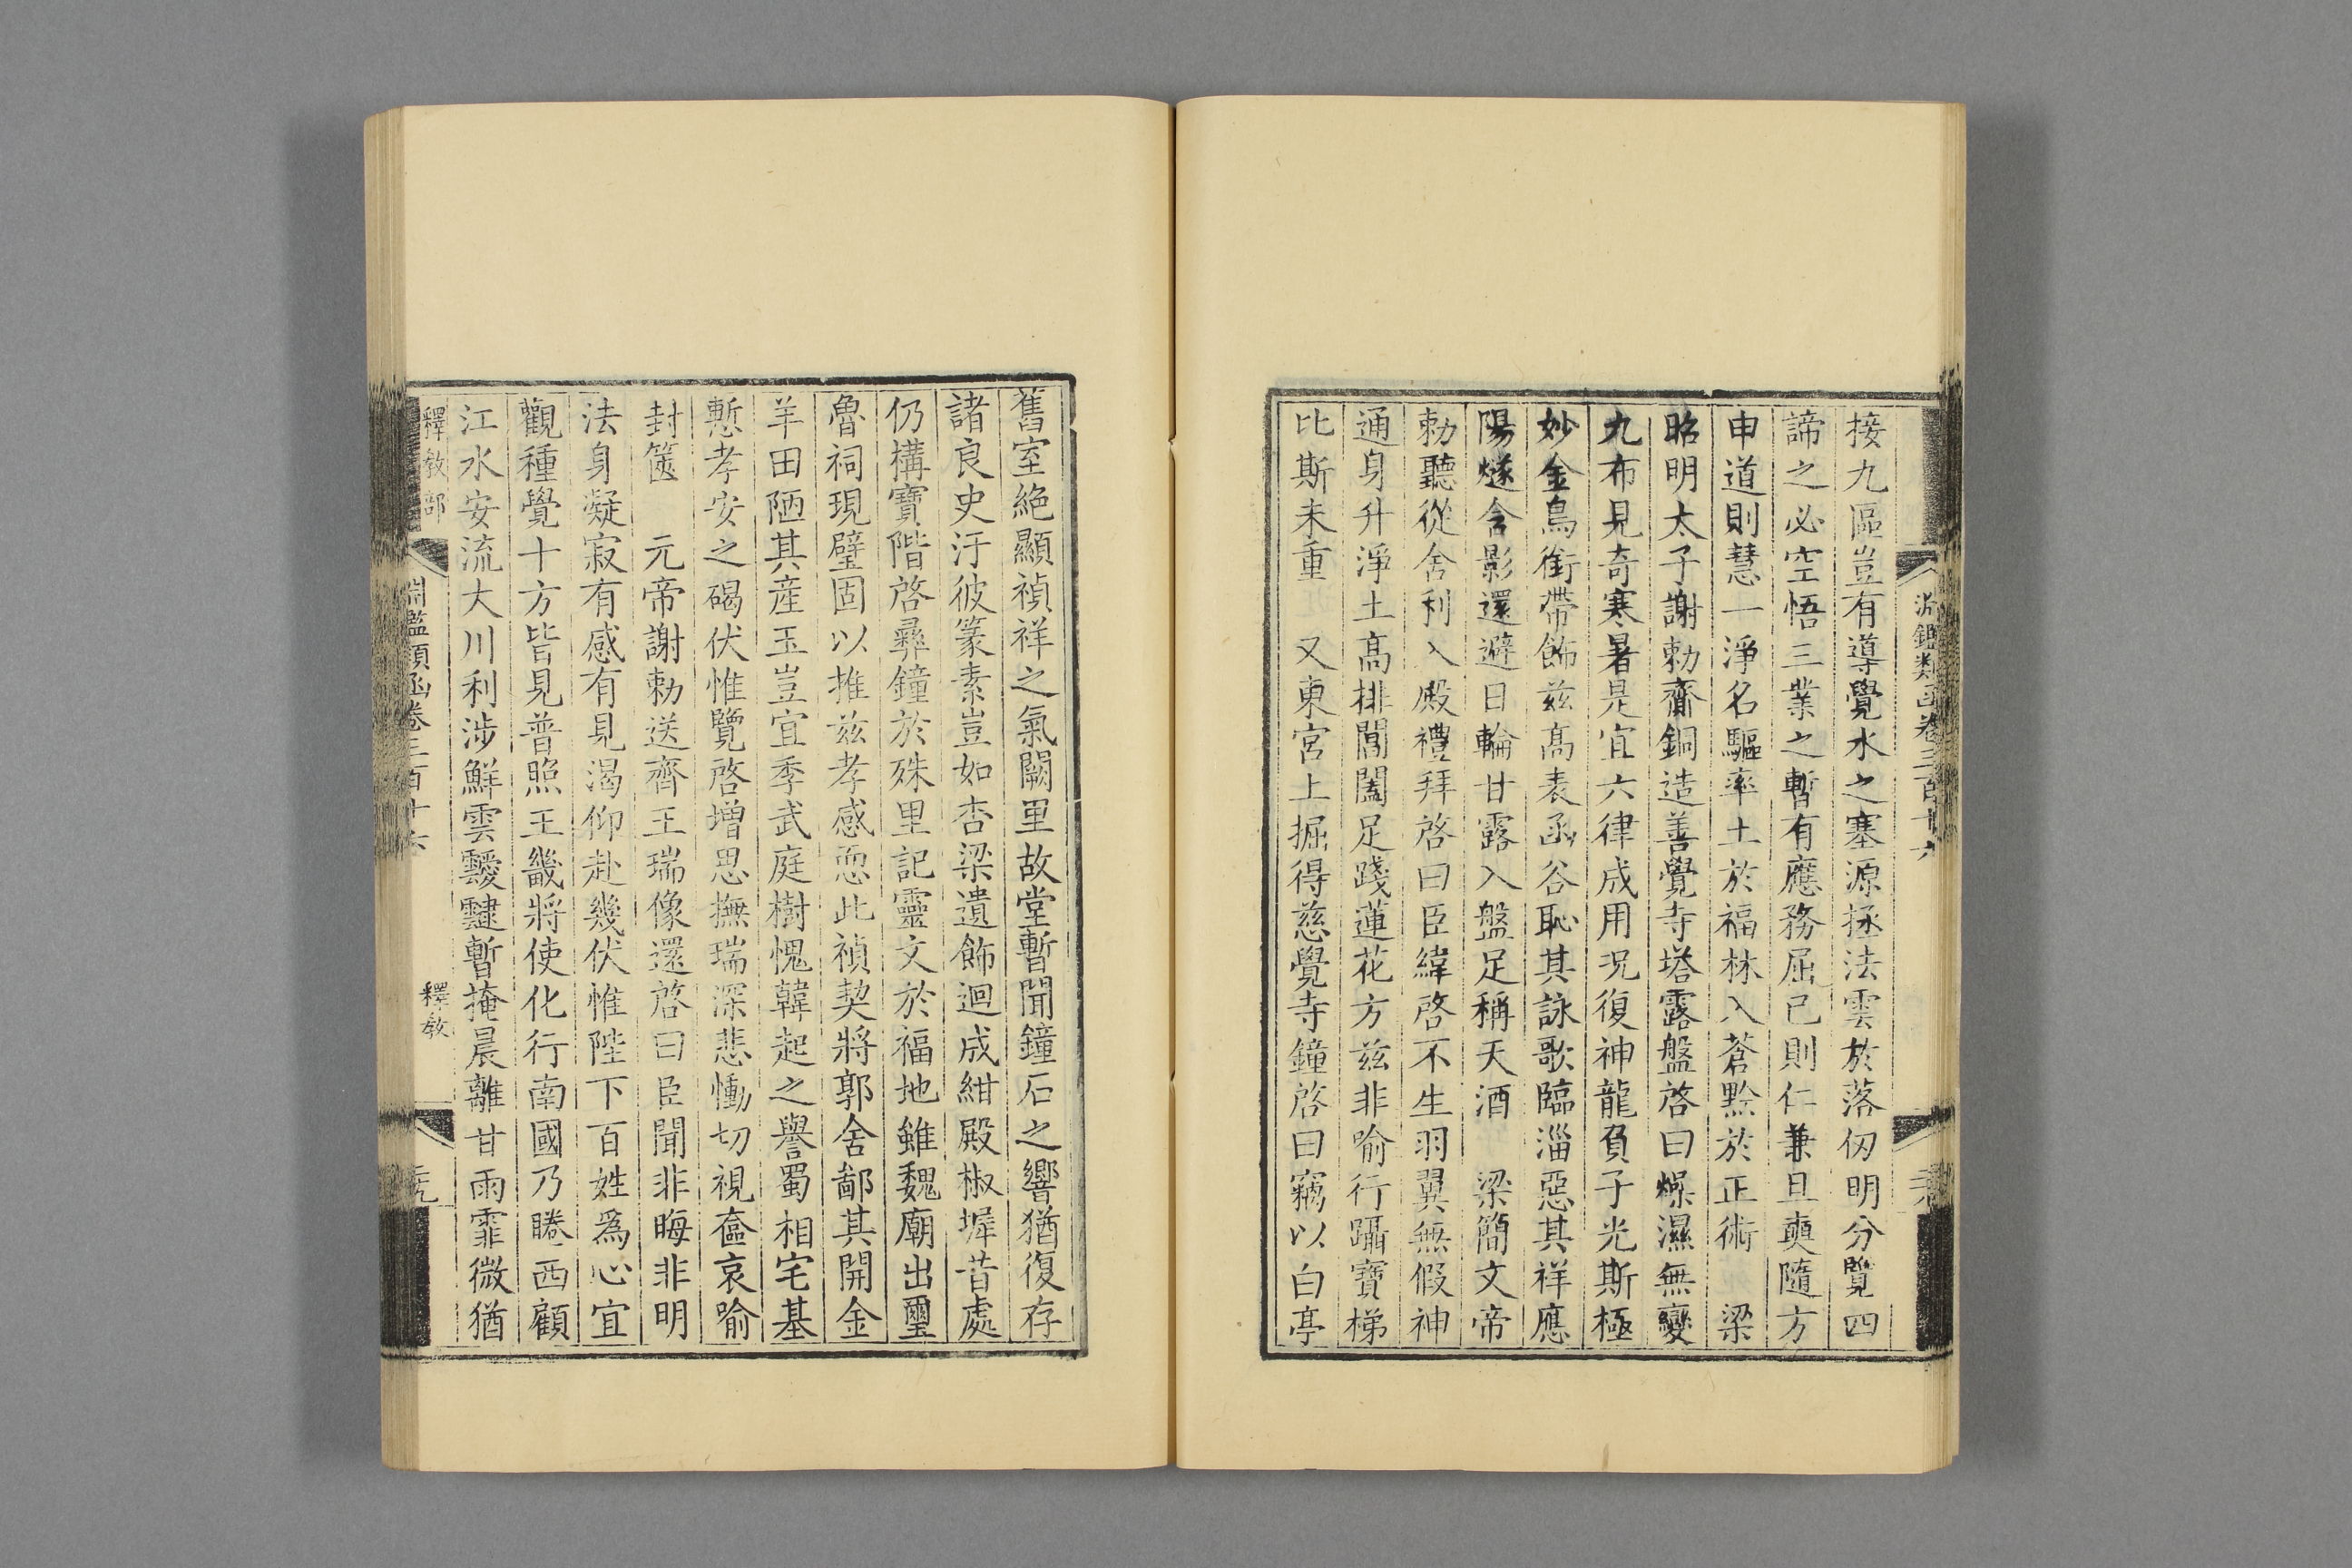 接九區豈有導覺水之塞源拯法雲於落仞明分覽四
諦之必空悟三業之暫有應務屈已則仁兼旦奭隨方
申道則慧一淨名驅率土於福林入蒼黔於正術　梁
昭明太子謝勅齎銅造善覺寺塔露盤啓曰燥濕無變
九布見奇寒暑是宜六律成用況復神龍負子光斯極
妙金鳥銜帶飾兹高表函谷恥其詠歌臨淄惡其祥應
陽燧含影還避日輪甘露入盤足稱天酒　梁簡文帝
勅聽從舍利入殿禮拜啓曰臣緯啓不生羽翼無假神
通身升淨土高排閶闔足踐蓮花方兹非喻行躡寶梯
比斯未重　又東宮上掘得慈覺寺鐘啓曰竊以白亭
舊室絶顯禎祥之氣闕里故堂暫聞鐘石之響猶復存
諸良史汙彼篆素豈如杏梁遺飾迴成紺殿椒墀昔處
仍構寶階啓彞鐘於殊里記靈文於福地雖魏廟出璽
魯祠現璧固以推兹孝感恧此禎契將郭舍鄙其開金
羊田陋其產玉豈宜季武庭樹愧韓起之譽蜀相宅基
慙孝安之碣伏惟覽啓增思撫瑞深悲慟切視奩哀喻
封篋　元帝謝勅送齊王瑞像還啓曰臣聞非晦非明
法身凝寂有感有見渴仰赴幾伏惟陛下百姓爲心宜
觀種覺十方皆見普照王畿將使化行南國乃睠西顧
江水安流大川利涉鮮雲靉靆暫掩晨離甘雨霏微猶
釋教部
淵鑑類函卷三百十六
釋教